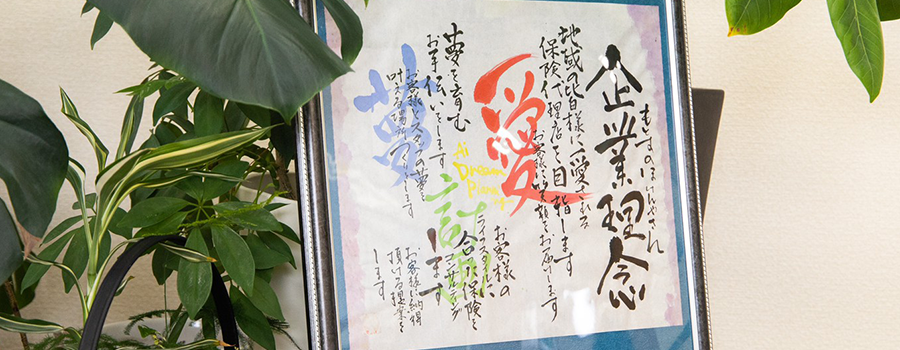 企業理念
地域の皆様に愛される
保険代理店を目指します
愛
お客様に安心と笑顔をお届けします
Ai
Dream
Plan
夢を育む
お手伝いをします
夢
お客様とスタッフの夢を
叶える場所づくりをします
計画
お客様の
ライフプランに
合った保険を
コンサルティング
します
お客様に納得
頂ける提案を
します